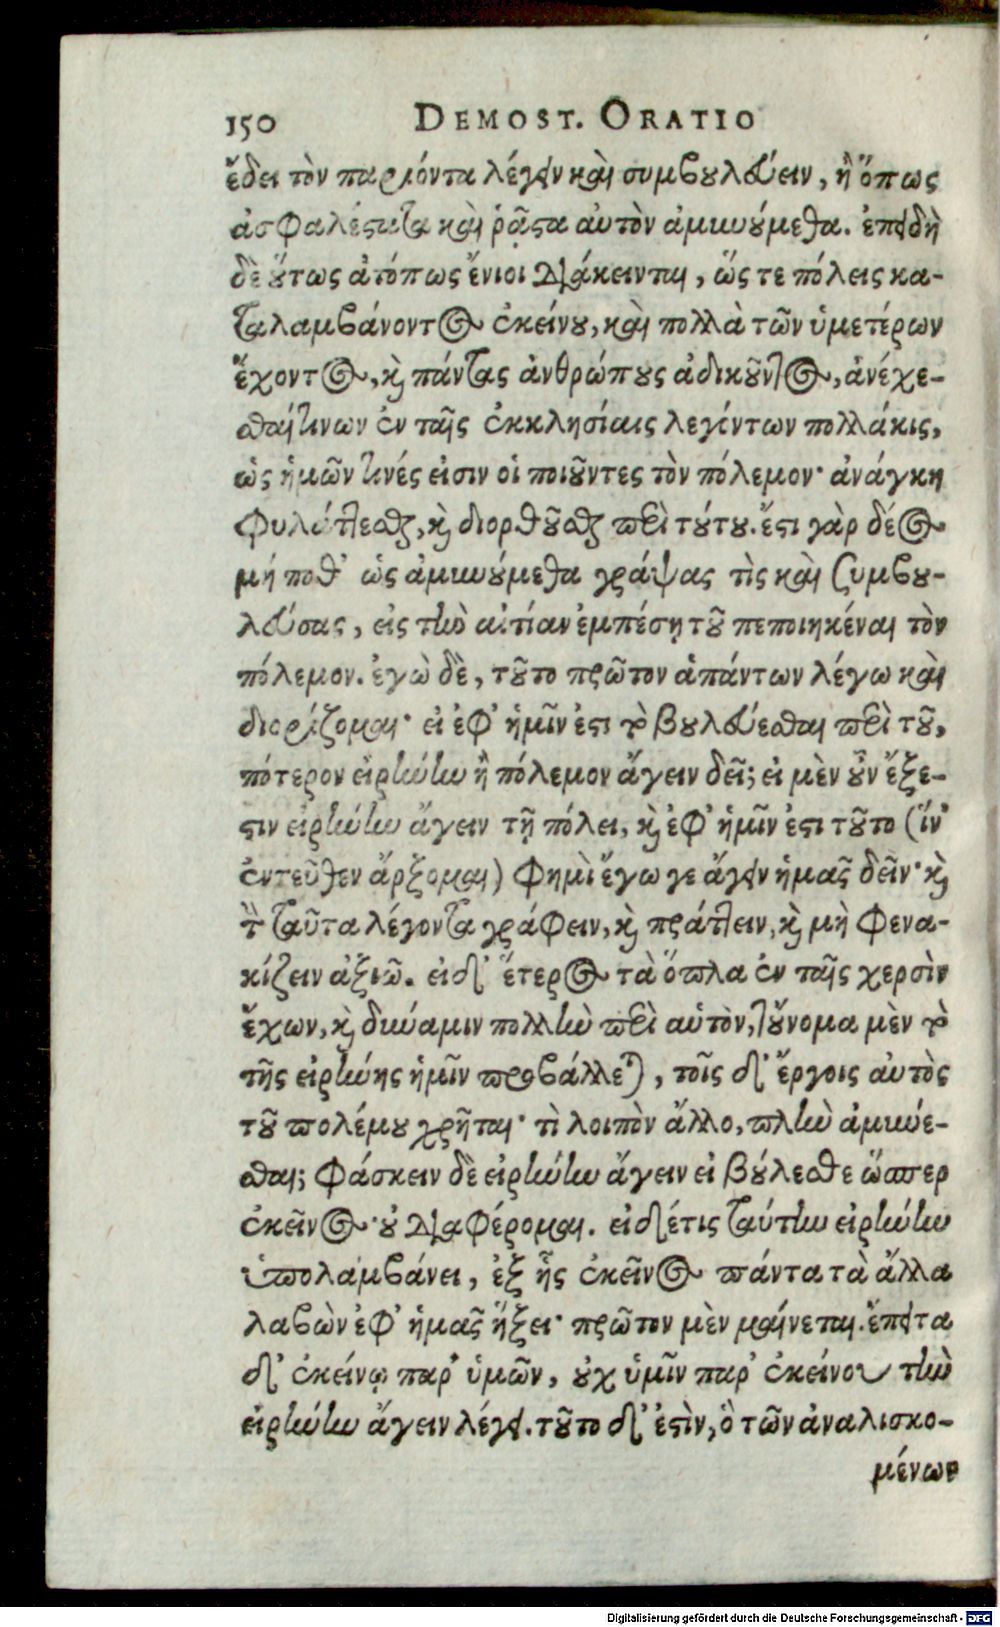 150 DEMOST. ORATIO
ἔδει τὸν παριόντα λέγειν καὶ συμβουλεύειν, ἢ ὅπως
ἀσφαλέστατα καὶ ῥᾷστα αὐτὸν ἀμυνούμεθα. ἐπειδὴ
δὲ οὕτως ἀτόπως ἔνιοι διάκεινται, ὥς τε πόλεις κα-
ταλαμβάνοντος ἐκείνου, καὶ πολλὰ τῶν ὑμετέρων
ἔχοντος, καὶ πάντας ἀνθρώπους ἀδικοῦντος, ἀνέχε-
σθαί τινων ἐν ταῖς ἐκκλησίαις λεγόντων πολλάκις,
ὡς ἡμῶν τινές εἰσιν οἱ ποιοῦντες τὸν πόλεμον· ἀνάγκη
φυλάττεσθαι, καὶ διορθοῦσθαι περὶ τούτου. ἔστι γὰρ δέος
μή ποθ' ὡς ἀμυνούμεθα γράψας τὶς καὶ συμβου-
λεύσας, εἰς τὴν αἰτίαν ἐμπέσῃ τοῦ πεποιηκέναι τὸν
πόλεμον. ἐγὼ δὲ, τοῦτο πρῶτον ἁπάντων λέγω καὶ
διορίζομαι· εἰ ἐφ' ἡμῖν ἐστι τὸ βουλεύεσθαι περὶ τοῦ,
πότερον εἰρήνην ἢ πόλεμον ἄγειν δεῖ; εἰ μὲν οὖν ἔξε-
στιν εἰρήνην ἄγειν τῇ πόλει, καὶ ἐφ' ἡμῖν ἐστι τοῦτο (ἵν'
ἐντεῦθεν ἄρξομαι) φημὶ ἔγωγε ἄγειν ἡμᾶς δεῖν· καὶ
τὸν ταῦτα λέγοντα γράφειν, καὶ πράττειν, καὶ μὴ φενα-
κίζειν ἀξιῶ. εἰ δ' ἕτερος τὰ ὅπλα ἐν ταῖς χερσὶν
ἔχων, καὶ δύναμιν πολλὴν περὶ αὑτὸν, τοὔνομα μὲν τὸ
τῆς εἰρήνης ἡμῖν προβάλλεται, τοῖς δ' ἔργοις αὐτὸς
τοῦ πολέμου χρῆται· τὶ λοιπὸν ἄλλο, πλὴν ἀμύνε-
σθαι; φάσκειν δὲ εἰρήνην ἄγειν εἰ βούλεσθε ὥσπερ
ἐκεῖνος· οὐ διαφέρομαι. εἰ δέ τις ταύτην εἰρήνην
ὑπολαμβάνει, ἐξ ἧς ἐκεῖνος πάντα τὰ ἄλλα
λαβὼν ἐφ' ἡμᾶς ἥξει· πρῶτον μὲν μαίνεται. ἔπειτα
δ' ἐκείνῳ παρ' ὑμῶν, οὐχ ὑμῖν παρ' ἐκείνου τὴν
εἰρήνην ἄγειν λέγει. τοῦτο δ' ἐστὶν, ὃ τῶν ἀναλισκο-
μένων
Digitalisierung gefördert durch die Deutsche Forschungsgemeinschaft - DFG